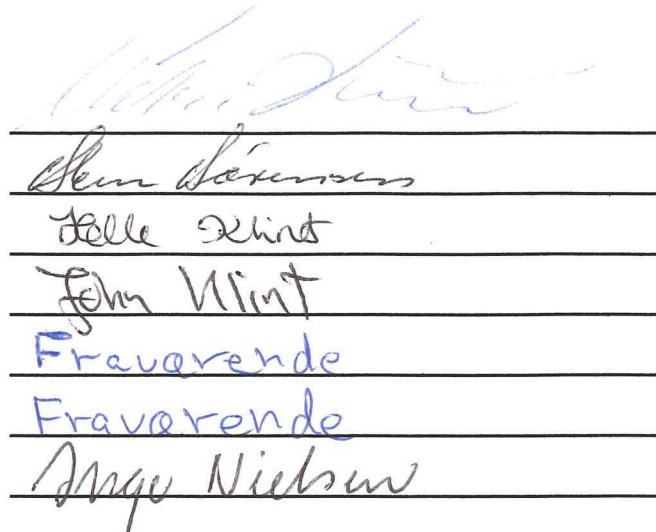 Sørensen
Helle Klint
John Klint
Fraværende
Fraværende
Inge Nielsen